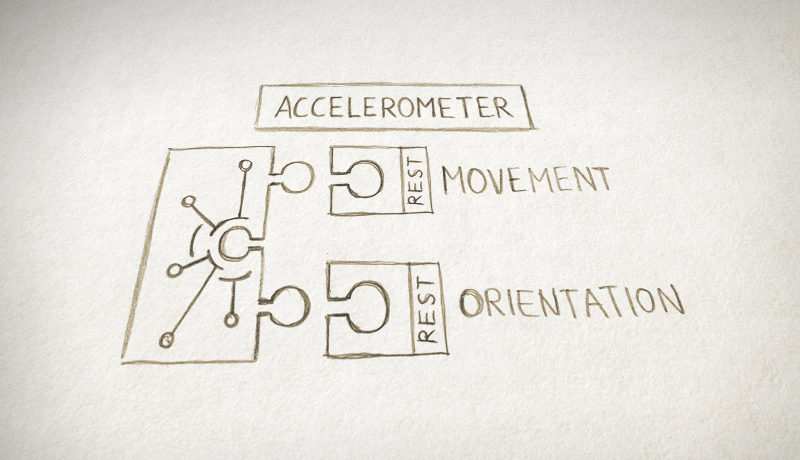 ACCELEROMETER
REST
MOVEMENT
REST
ORIENTATION